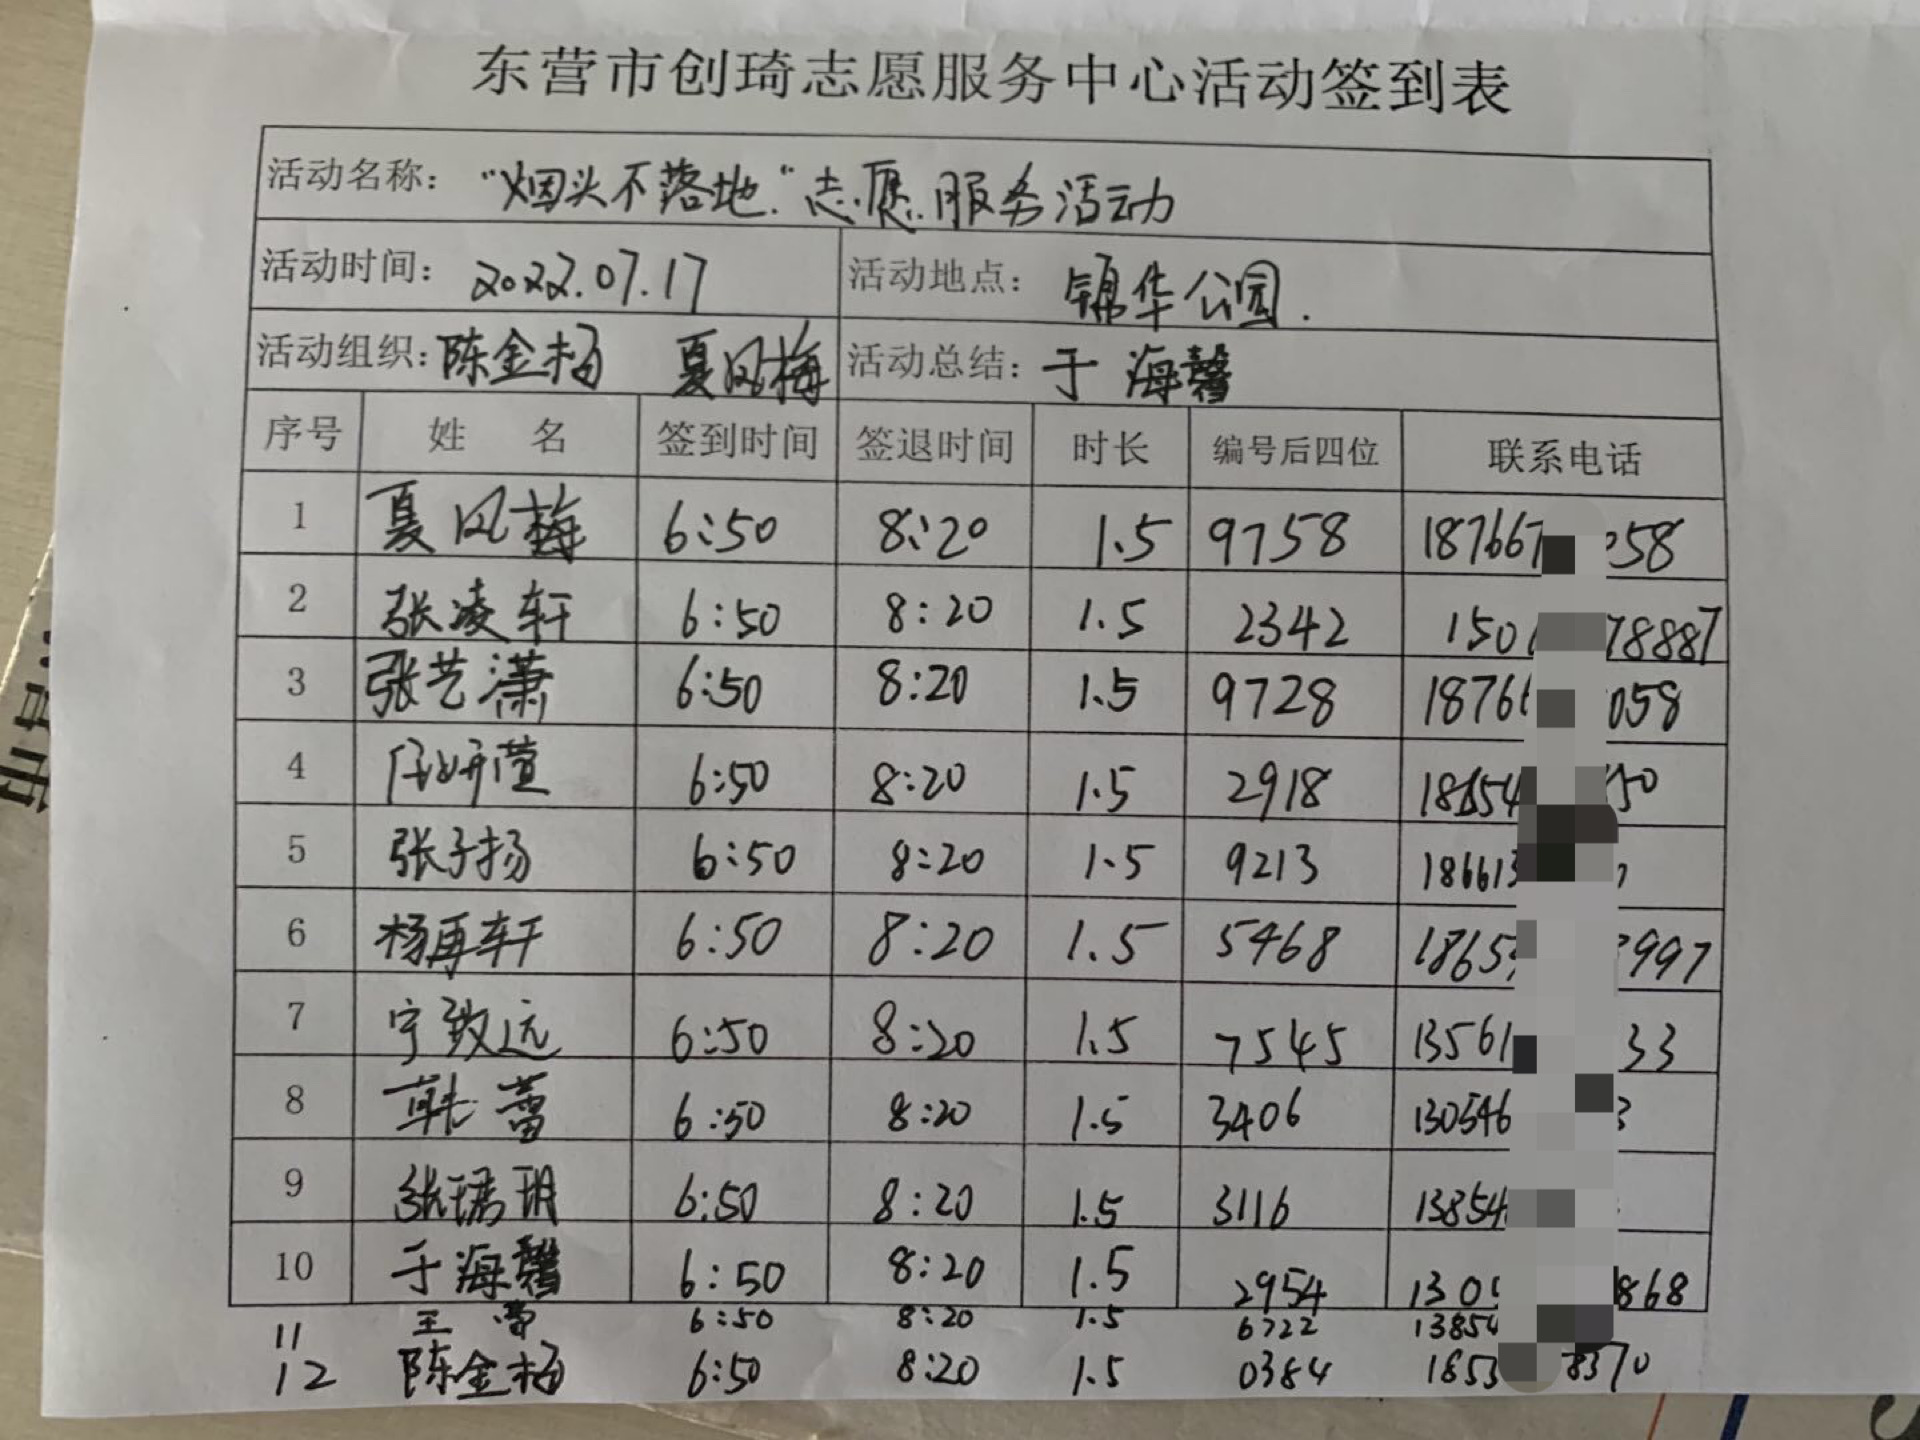 东营市创琦志愿服务中心活动签到表
活动名称：“烟头不落地”志愿服务活动
活动时间：2022.07.17 活动地点：锦华公园.
活动组织：陈金杨 夏风梅 活动总结：于海馨
序号 姓名 签到时间 签退时间 时长 编号后四位 联系电话
1 夏风梅 6:50 8:20 1.5 9758 187667 058
2 张凌轩 6:50 8:20 1.5 2342 150 78887
3 张艺潇 6:50 8:20 1.5 9728 1876 058
4 任妍萱 6:50 8:20 1.5 2918 18654 50
5 张子扬 6:50 8:20 1.5 9213 18661
6 杨再轩 6:50 8:20 1.5 5468 1865 997
7 宁致远 6:50 8:20 1.5 7545 13561 33
8 韩蕾 6:50 8:20 1.5 3406 130546 3
9 张珺玥 6:50 8:20 1.5 3116 13854
10 于海馨 6:50 8:20 1.5 2954 130 868
11 王 6:50 8:20 1.5 6722 13854
12 陈金杨 6:50 8:20 1.5 0384 1853 8370